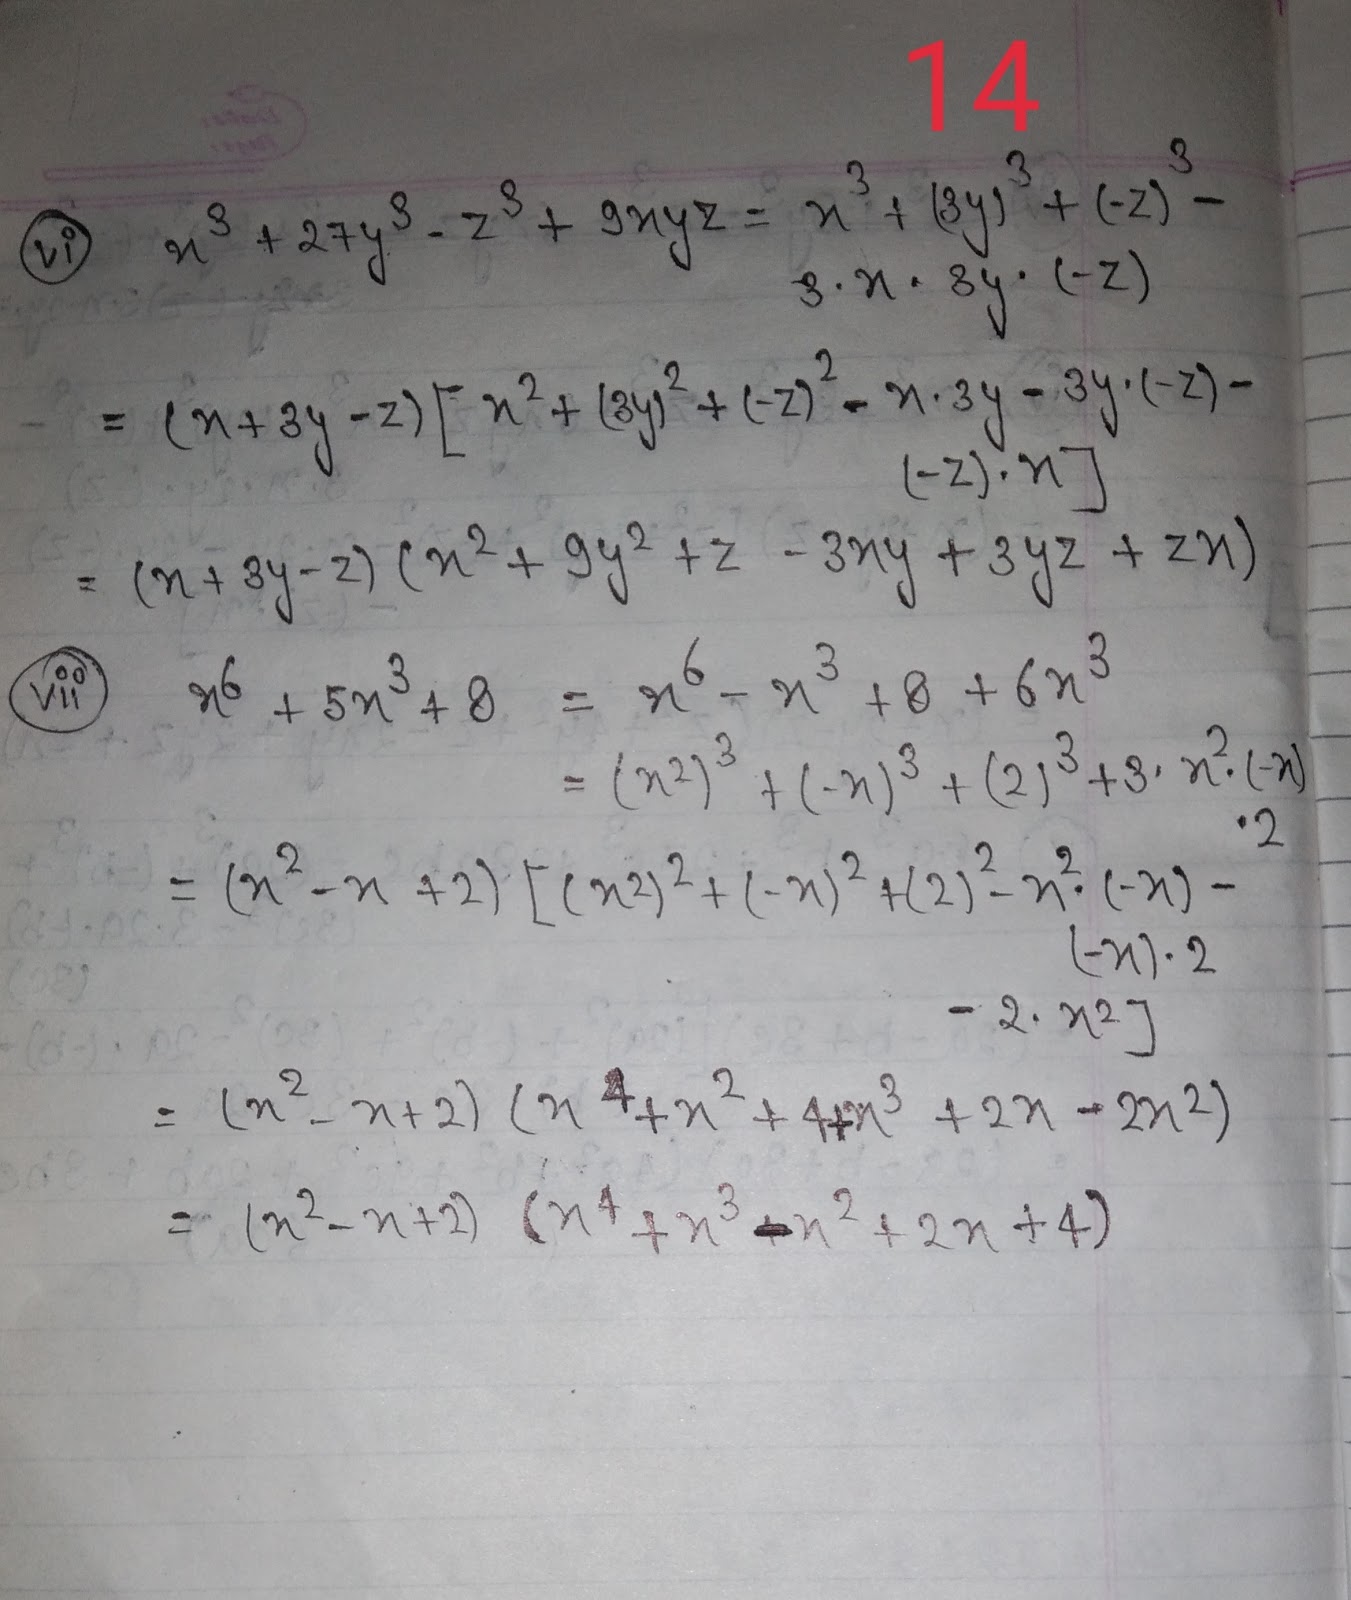 14
(vi) x³ + 27y³ - z³ + 9xyz = x³ + (3y)³ + (-z)³ -
3·x·3y·(-z)
= (x+3y-z)[x² + (3y)² + (-z)² - x·3y - 3y·(-z) -
(-z)·x]
= (x+3y-z)(x² + 9y² + z - 3xy + 3yz + zx)
(vii) x⁶ + 5x³ + 8 = x⁶ - x³ + 8 + 6x³
= (x2)³ + (-x)³ + (2)³ + 3·x²·(-x)
·2
= (x² - x + 2)[(x2)² + (-x)² + (2)² - x²·(-x) -
(-x)·2
- 2·x2]
= (x² - x+2)(x⁴ + x² + 4 + x³ + 2x - 2x²)
= (x² - x+2)(x⁴ + x³ - x² + 2x + 4)